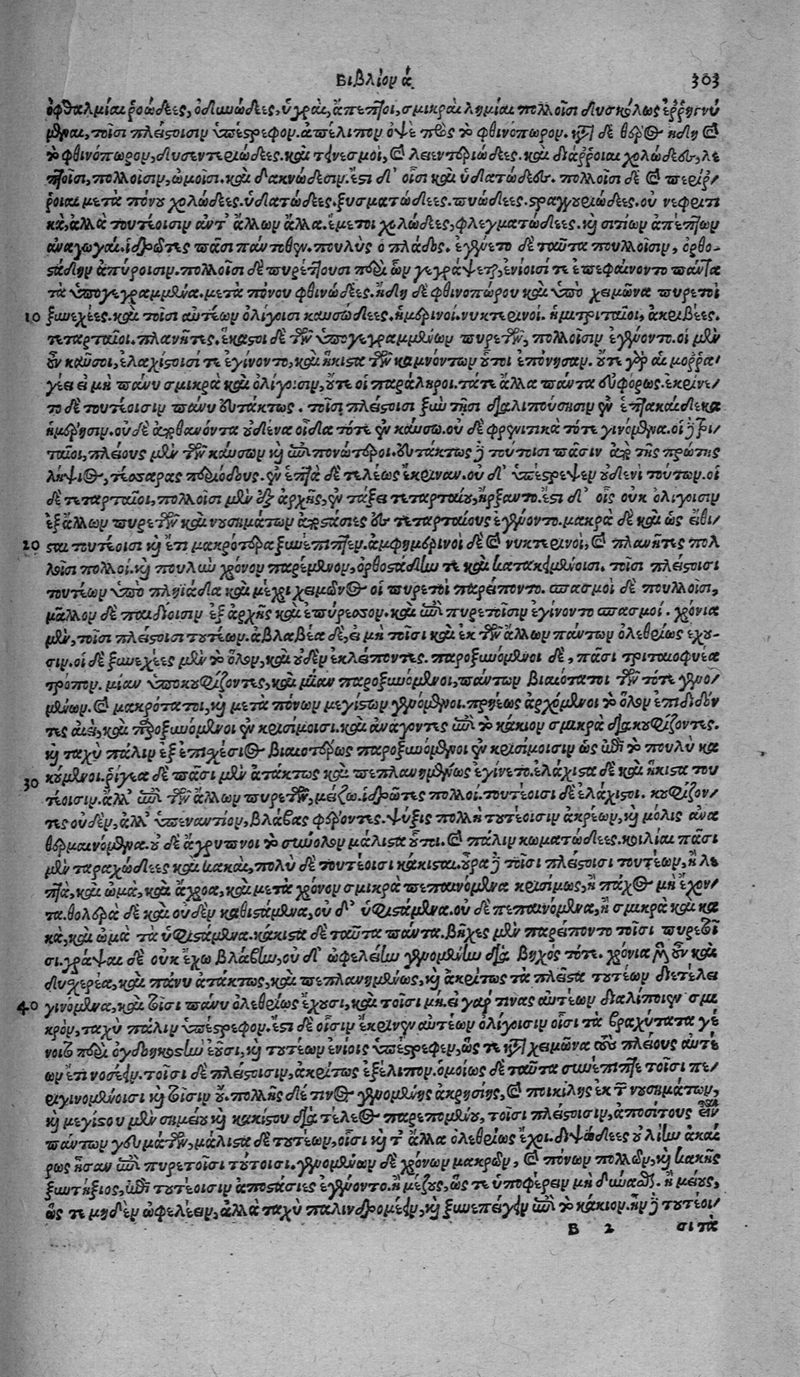 Βιβλίον ά. 303
ὀφθαλμίαι ῥοώδεες, ὀδυνώδεες, ὑγραὶ, ἄπεπτοι, σμικραὶ λημίαι πολλοῖσι δυσκόλως ἐρρήγνυ
μεναι, τοῖσι πλείστοισιν ὑπέστρεφον. ἀπέλιπον ὀψὲ πρὸς τὸ φθινόπωρον. κατὰ δὲ θέρος ἤδη καὶ
τὸ φθινόπωρον, δυσεντεριώδεες. καὶ τεινεσμοὶ, καὶ λειεντεριώδεες. καὶ διάρροιαι χολώδεες, λε
πτοῖσι, πολλοῖσιν, ὠμοῖσι. καὶ δακνώδεσιν. ἔστι δ' οἷσι καὶ ὑδατώδεες. πολλοῖσι δὲ καὶ περίρ
ροιαι μετὰ πόνου χολώδεες. ὑδατώδεες. ξυσματώδεες. πυώδεες. στραγγουριώδεες. οὐ νεφριτι
κὰ, ἀλλὰ τουτέοισιν ἀντ' ἄλλων ἄλλα. ἔμετοι χολώδεες, φλεγματώδεες. καὶ σιτίων ἀπέπτων
ἀναγωγαί. ἱδρῶτες πᾶσι πάντοθεν. πουλὺς ὁ πλάδος. ἐγένετο δὲ ταῦτα πουλλοῖσιν, ὀρθο-
στάδην ἀπύροισιν. πολλοῖσι δὲ πυρέττουσι περὶ ὧν γεγράψεται, ἐνίοισί τε ἐπεφαίνοντο πάντα
τὰ ὑπογεγραμμένα. μετὰ πόνου φθινώδεες. ἤδη δὲ φθινοπώρου καὶ ὑπὸ χειμῶνα πυρετοὶ
10 ξυνεχέες. καὶ τοῖσι αὐτέων ὀλίγοισι καυσώδεες. ἡμερινοί. νυκτερινοί. ἡμιτριταῖοι, ἀκριβέες.
τεταρταῖοι. πλανῆτες. ἕκαστοι δὲ τῶν ὑπογεγραμμένων πυρετῶν, πολλοῖσιν ἐγένοντο. οἱ μὲν
οὖν καῦσοι, ἐλαχίστοισί τε ἐγίνοντο, καὶ ἥκιστα τῶν καμνόντων οὗτοι ἐπόνησαν. οὔτε γὰρ αἱμορρα
γίαι εἰ μὴ πάνυ σμικρὰ καὶ ὀλίγοισιν, οὔτε οἱ παράληροι. τά τε ἄλλα πάντα εὐφόρως. ἐκρίνε
το δὲ τουτέοισιν πάνυ εὐτάκτως. τοῖσι πλείστοισι ξὺν τῇσι διαλιπούσῃσιν ἐν ἑπτακαίδεκα
ἡμέρῃσιν. οὐδὲ ἀποθανόντα οὐδένα οἶδα τότε ἐν καύσῳ. οὐδὲ φρενιτικὰ τότε γινόμενα. οἱ δὲ τρι
ταῖοι, πλείους μὲν τῶν καύσων καὶ ἐπιπονώτεροι. εὐτάκτως δὲ τουτοισι πᾶσιν ἀπὸ τῆς πρώτης
λήψιος, τέσσαρας περιόδους. ἐν ἑπτὰ δὲ τελέως ἔκριναν. οὐ δ' ὑπέστρεψεν οὐδενὶ τούτων. οἱ
δὲ τεταρταῖοι, πολλοῖσι μὲν ἐξ ἀρχῆς, ἐν τάξει τεταρταίου, ἤρξαντο. ἔστι δ' οἷς οὐκ ὀλίγοισιν
ἐξ ἄλλων πυρετῶν καὶ νουσημάτων ἀποστάσιες ἐς τεταρταίους ἐγένοντο. μακρὰ δὲ καὶ ὡς εἴθι
20 σται τουτέοισι καὶ ἔτι μακρότερα ξυνέπιπτεν. ἀμφημερινοὶ δὲ καὶ νυκτερινοὶ, καὶ πλανῆτες πολ
λοῖσι πολλοί. καὶ πουλὺν χρόνον παρέμενον, ὀρθοστάδην τε καὶ κατακειμένοισι. τοῖσι πλείστοισι
τουτέων ὑπὸ πληϊάδα καὶ μέχρι χειμῶνος οἱ πυρετοὶ παρείποντο. σπασμοὶ δὲ πουλλοῖσι,
μᾶλλον δὲ παιδίοισιν ἐξ ἀρχῆς καὶ ἐπύρεσσον. καὶ ἐπὶ πυρετοῖσιν ἐγίνοντο σπασμοί. χρόνια
μὲν, τοῖσι πλείστοισι τουτέων. ἀβλαβέα δὲ, εἰ μὴ τοῖσι καὶ ἐκ τῶν ἄλλων πάντων ὀλεθρίως ἔχου
σιν. οἱ δὲ ξυνεχέες μὲν τὸ ὅλον, καὶ οὐδὲν ἐκλείποντες. παροξυνόμενοι δὲ, πᾶσι τριταιοφυέα
τρόπον. μίαν ὑποκουφίζοντες, καὶ μίαν παροξυνόμενοι, πάντων βιαιότατοι τῶν τότε γενο
μένων. καὶ μακρότατοι, καὶ μετὰ πόνων μεγίστων γενόμενοι. πρηέως ἀρχόμενοι τὸ ὅλον ἐπιδιδόν
τες ἀεὶ, καὶ παροξυνόμενοι ἐν κρισίμοισι. καὶ ἀνάγοντες ἐπὶ τὸ κάκιον σμικρὰ διακουφίζοντες.
καὶ ταχὺ πάλιν ἐξ ἐπισχέσιος βιαιοτέρως παροξυνόμενοι ἐν κρισίμοισιν ὡς ἐπὶ τὸ πουλὺ κα
30 κούμενοι. ῥίγεα δὲ πᾶσι μὲν ἀτάκτως καὶ πεπλανημένως ἐγίνετο. ἐλάχιστα δὲ καὶ ἥκιστα του
τέοισιν. ἀλλ' ἐπὶ τῶν ἄλλων πυρετῶν, μείζω. ἱδρῶτες πολλοί. τουτέοισι δὲ ἐλάχιστοι. κουφίζον
τες οὐδὲν, ἀλλ' ὑπεναντίον, βλάβας φέροντες. ψύξις πολλὴ τουτέοισιν ἀκρέων, καὶ μόλις ἀνα
θερμαινόμενα. οὐ δὲ ἄγρυπνοι τὸ σύνολον μάλιστα οὗτοι. καὶ πάλιν κωματώδεες. κοιλίαι πᾶσι
μὲν ταραχώδεες καὶ κακαὶ, πολὺ δὲ τουτέοισι κάκισται. οὖρα δὲ τοῖσι πλείστοισι τουτέων, ἢ λε
πτὰ, καὶ ὠμὰ, καὶ ἄχροα, καὶ μετὰ χρόνον σμικρὰ πεπαινόμενα κρισίμως, ἢ πάχος μὲν ἔχον
τα. θολερὰ δὲ καὶ οὐδὲν καθιστάμενα, οὐ δ' ὑφιστάμενα. οὐ δὲ πεπαινόμενα, ἢ σμικρὰ καὶ κα
κὰ, καὶ ὠμὰ τὰ ὑφιστάμενα. κάκιστα δὲ ταῦτα πάντα. βῆχες μὲν παρείποντο τοῖσι πυρετοῖ
σι. γράψαι δὲ οὐκ ἔχω βλάβην, οὐ δ' ὠφελείην γενομένην διὰ βηχὸς τότε. χρόνια μὲν οὖν καὶ
δυσχερέα, καὶ πάνυ ἀτάκτως, καὶ πεπλανημένως, καὶ ἀκρίτως τὰ πλεῖστα τουτέων διετέλει
40 γινόμενα, καὶ τοῖσι πάνυ ὀλεθρίως ἔχουσι, καὶ τοῖσι μή. εἰ γάρ τινας αὐτέων διαλίποιεν σμι
κρὸν, ταχὺ πάλιν ὑπέστρεφον. ἔστι δὲ οἷσιν ἔκρινεν αὐτέων ὀλίγοισιν οἷσι τὰ βραχύτατα γέ
νοιτο περὶ ὀγδοηκοστὴν ἐοῦσι, καὶ τουτέων ἐνίοις ὑπέστρεφεν, ὥς τε κατὰ χειμῶνα τοὺς πλείους αὐτέ
ων ἔτι νοσέειν. τοῖσι δὲ πλείστοισιν, ἀκρίτως ἐξέλιπον. ὁμοίως δὲ ταῦτα συνέπιπτε τοῖσι πε
ριγινομένοισι καὶ τοῖσιν οὔ. πολλῆς δέ τινος γενομένης ἀκρησίης, καὶ ποικίλης ἐκ τῶν νουσημάτων,
καὶ μεγίστου μὲν σημείου καὶ κακίστου διὰ τέλεος παρεπομένου, τοῖσι πλείστοισιν, ἀποσίτους εἶναι
πάντων γευμάτων, μάλιστα δὲ τουτέων, οἷσι καὶ τἄλλα ὀλεθρίως ἔχοι. διψώδεες οὐ λίην ἀκαί
ρως ἦσαν ἐπὶ πυρετοῖσι τούτοισι. γενομένων δὲ χρόνων μακρῶν, καὶ πόνων πολλῶν, καὶ κακῆς
ξυντήξιος, ἐπὶ τουτέοισιν ἀποστάσιες ἐγένοντο. ἢ μέζους, ὥς τε ὑποφέρειν μὴ δύνασθαι. ἢ μείους,
ὥς τε μηδὲν ὠφελέειν, ἀλλὰ ταχὺ παλινδρομέειν, καὶ ξυνεπείγειν ἐπὶ τὸ κάκιον. ἦν δὲ τουτέοι
B 2 σι τὰ